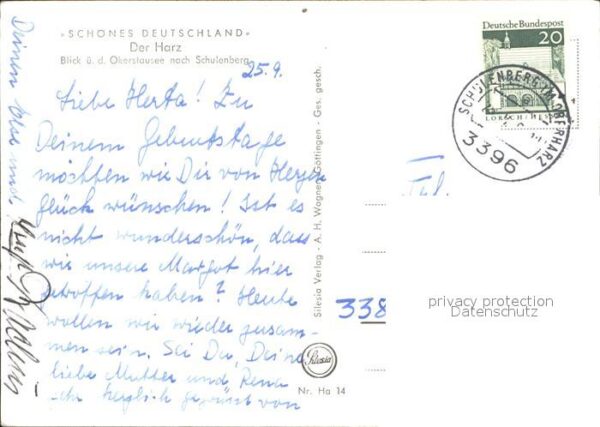 «SCHÖNES DEUTSCHLAND»
Der Harz
Blick ü. d. Okerstausee nach Schulenberg
25.9.
Liebe Herta! Zu
Deinem Geburtstage
möchten wir Dir von Herzen
Glück wünschen! Ist es
nicht wunderschön, dass
wir unsere Margot hier
getroffen haben? Heute
wollen wir wieder zusam-
men sein. Sei Du, Deine
liebe Mutter und Rena
herzlich gegrüsst von
Deinen
und
Silesia Verlag - A. H. Wagner, Göttingen - Ges. gesch.
Silesia
Nr. Ha 14
Deutsche Bundespost
20
LORSCH/HESSEN
SCHULENBERG IM OBERHARZ
3396
338
privacy protection
Datenschutz